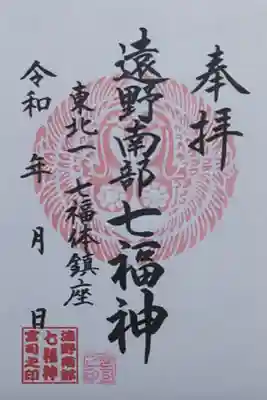 奉拝
遠野南部七福神
東北一 七福体鎮座
令和 年 月 日
遠野南部
七福神
宮司之印